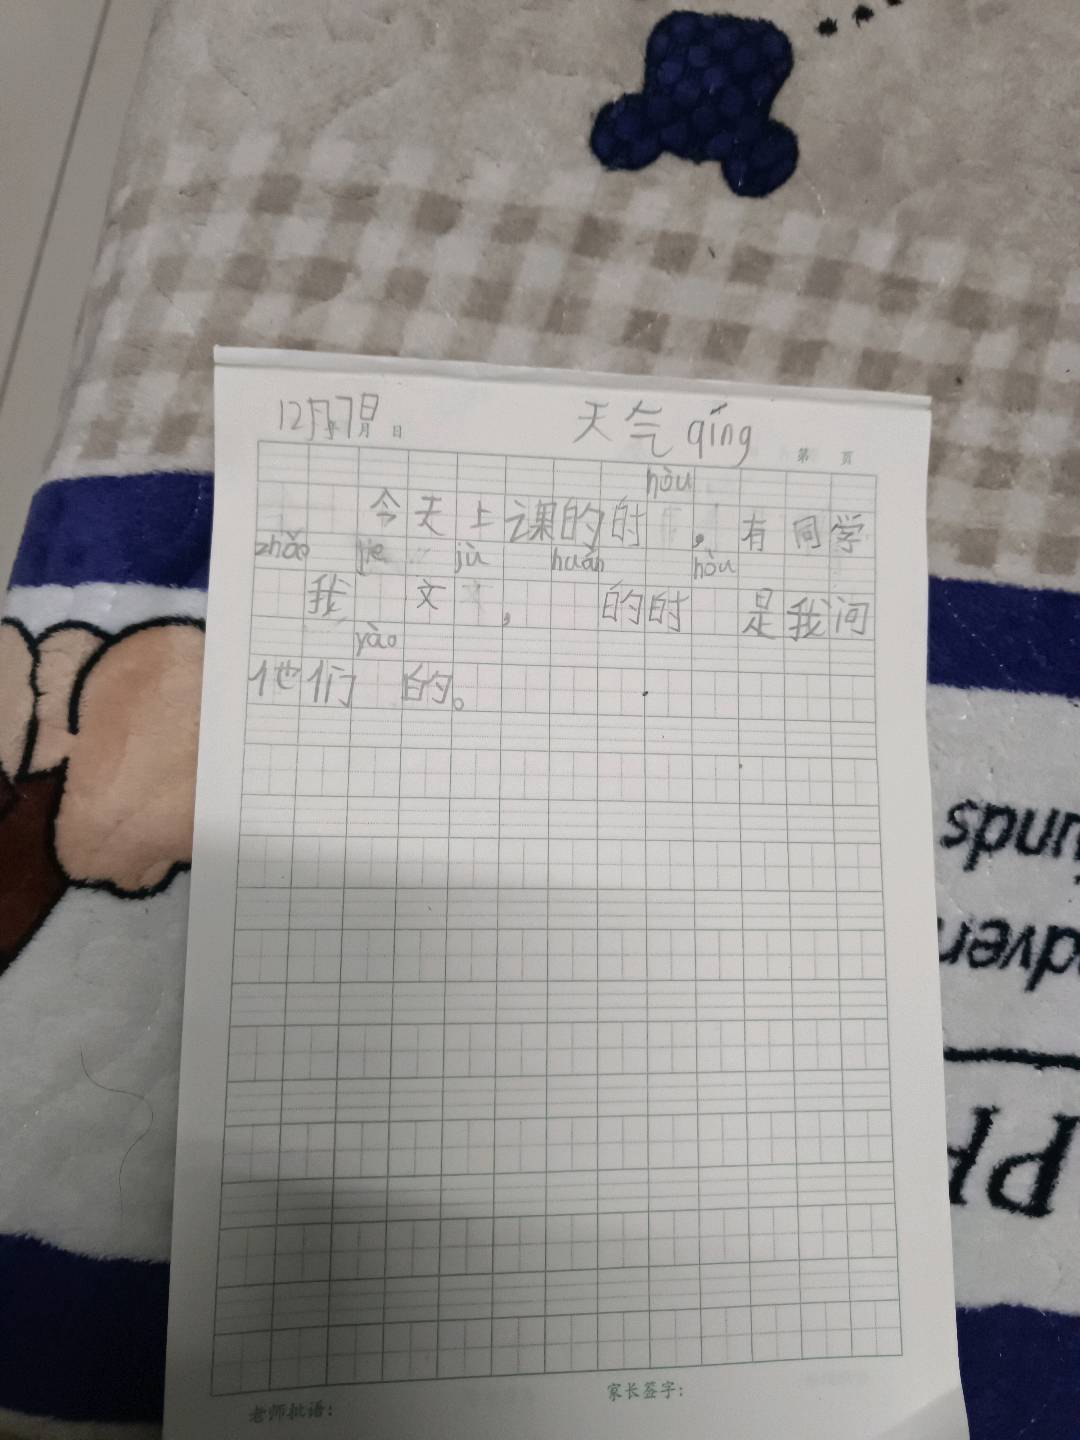 12月7日 月 日 天气 qíng
第 页
hòu
今天上课的时 ,有同学
zhǎo jie jù huán hòu
我 文 , 的时 是我问
yào
他们 的。
老师批语:
家长签字: